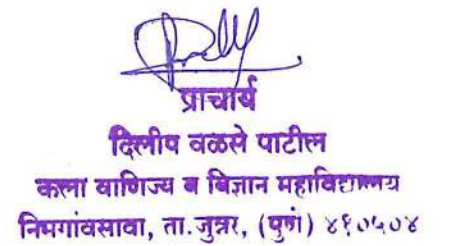 प्राचार्य
दिलीप वळसे पाटील
कला वाणिज्य व विज्ञान महाविद्यालय
निमगांवसावा, ता.जुन्नर, (पुणे) ४१०५०४